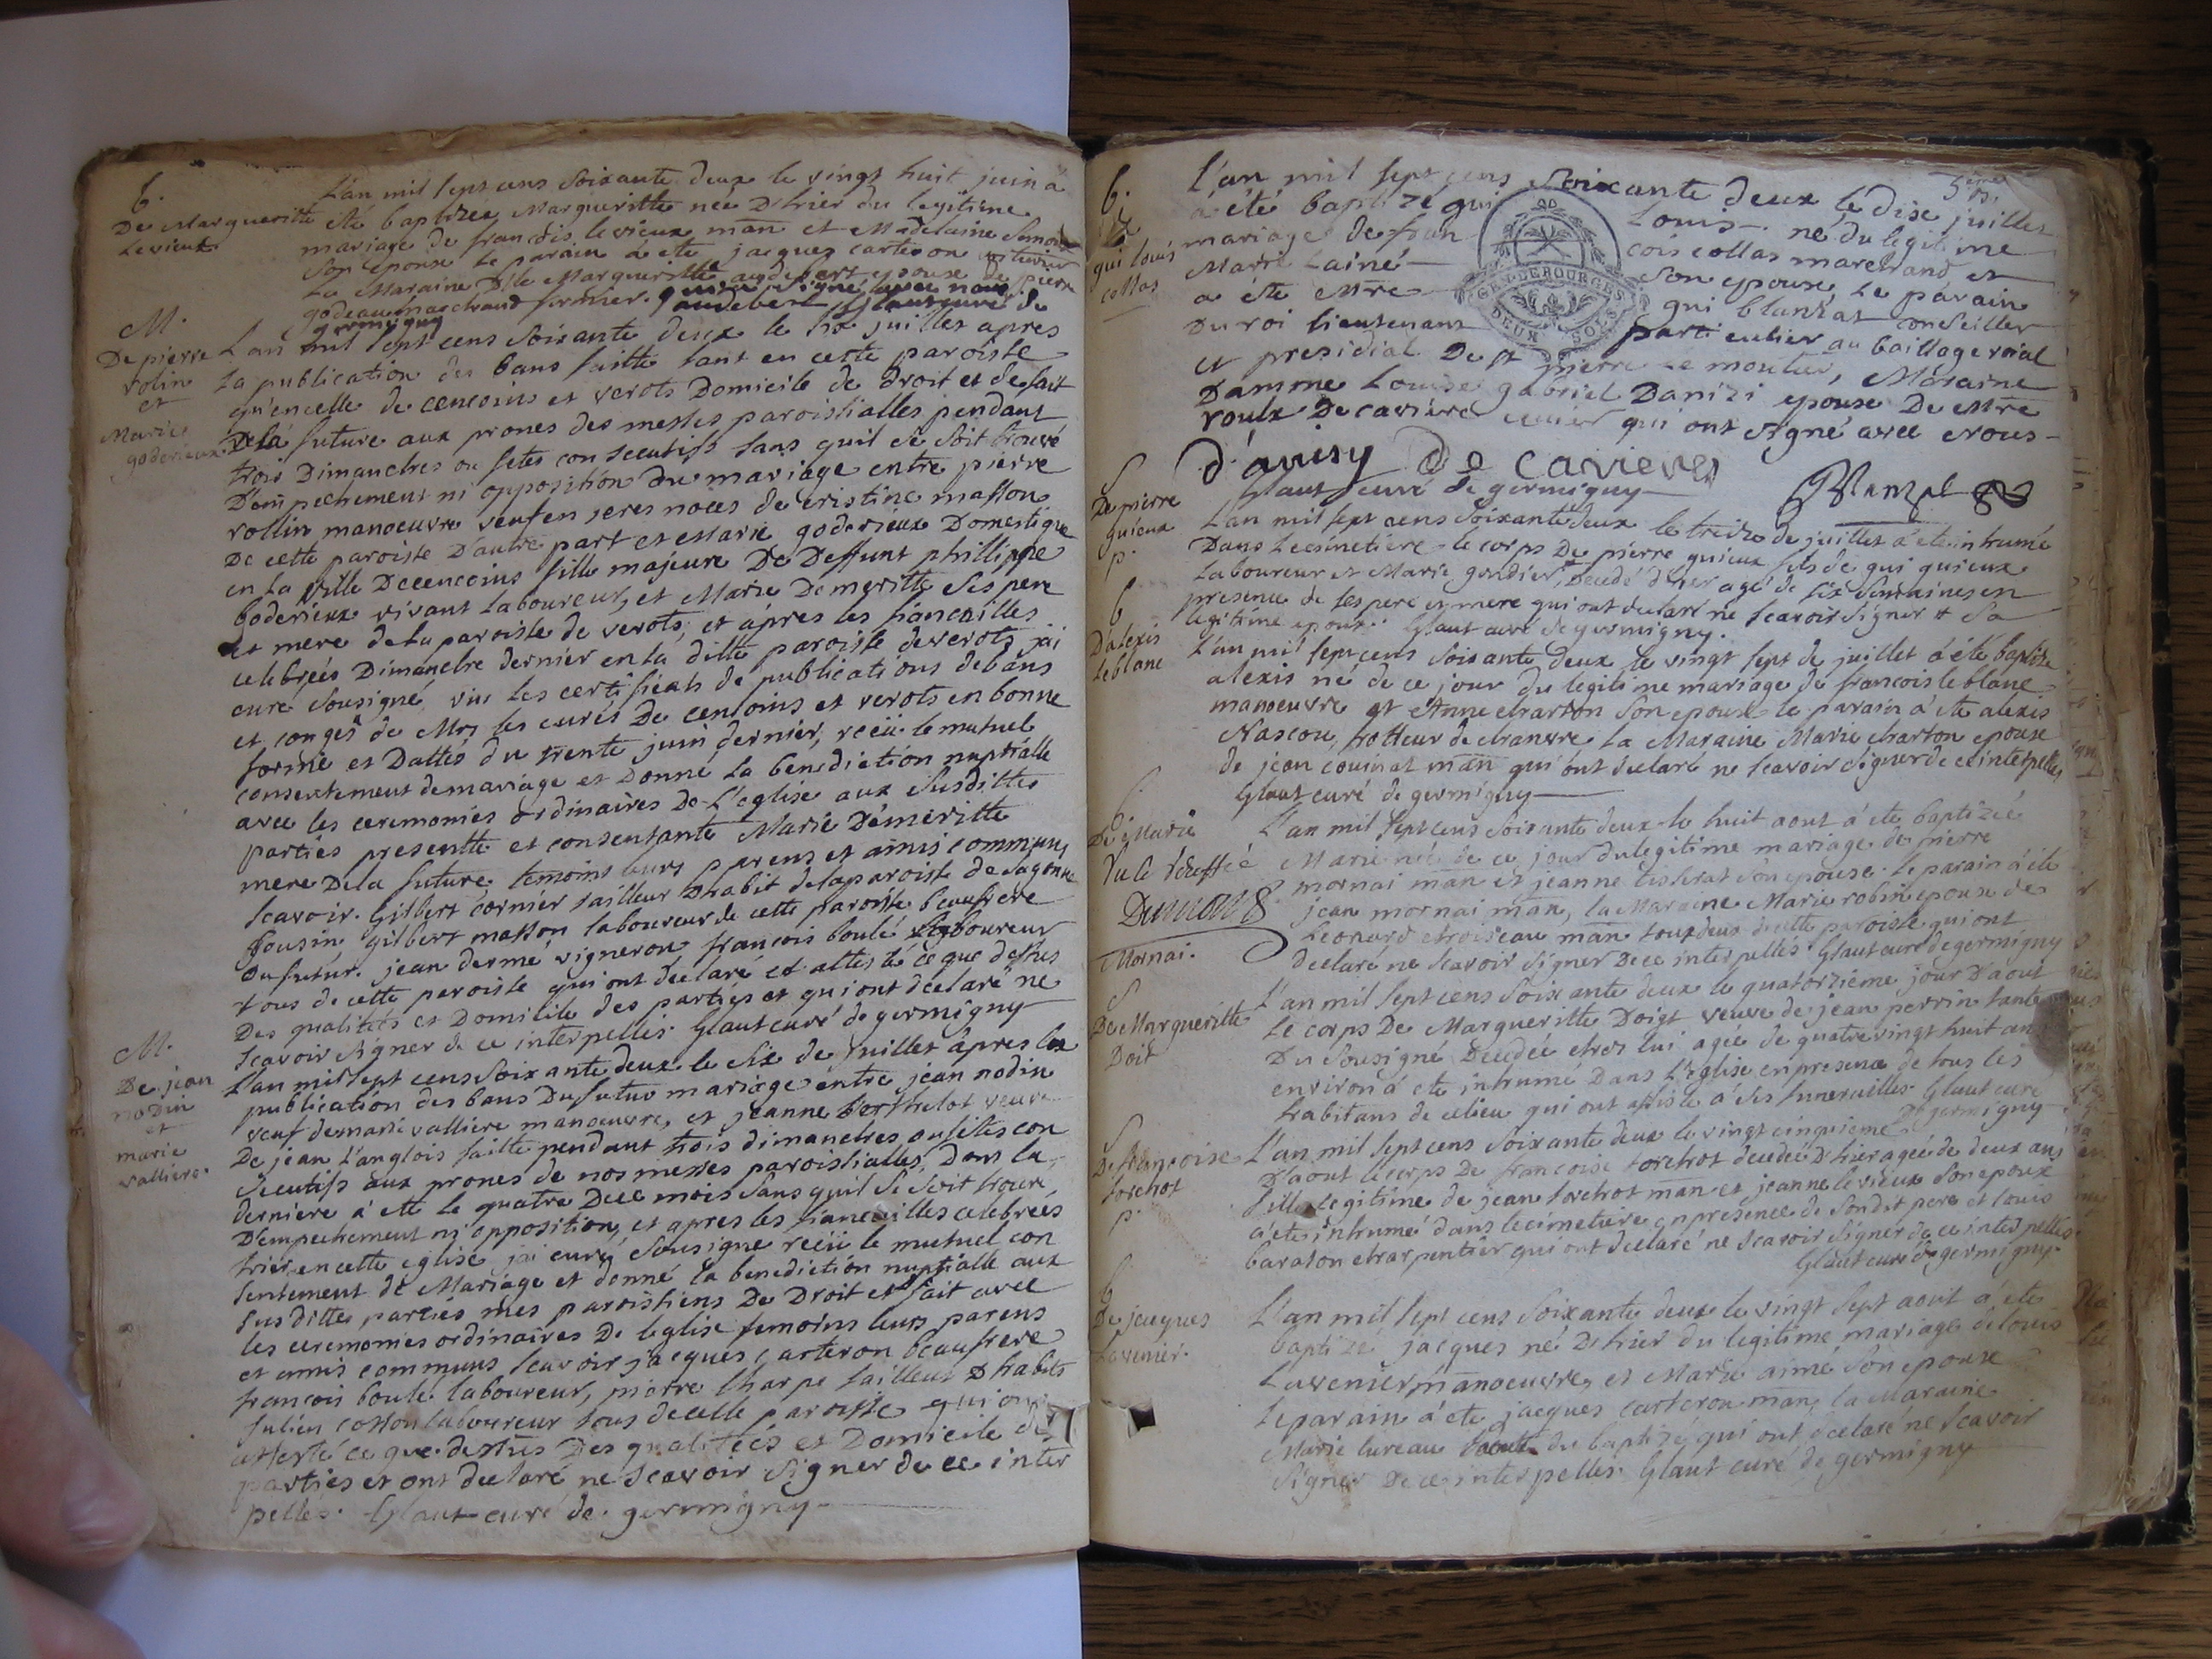 b.
De Margueritte
Levieux
L'an mil sept cens soixante deux le vingt huit juin a
été baptizée Margueritte née D'hier du legitime
mariage de francois levieux man et Madelaine Simon
son epouse le parain a ete jacques carteron
La Maraine Dlle Margueritte audebert epouse de pierre
godeau marchand fermier. qui a signé avec nous
audebert Glaut curé de
germigny
M.
De pierre
rolin
et
Marie
goderieux
L'an mil sept cens soixante deux le six juillet apres
la publication des bans faitte tant en cette paroisse
qu'en celle de cencoins et verots Domicile de droit et de fait
Dela future aux prones des messes paroissialles pendant
trois Dimanches ou fetes consecutifs sans quil se soit trouvé
D'empechement ni opposition du mariage entre pierre
rollin manoeuvre veuf en 1eres noces de cristine masson
De cette paroisse D'autre part et Marie goderieux Domestique
en la ville De cencoins fille majeure De Deffunt phillippe
goderieux vivant laboureur, et Marie Demeritte ses pere
et mere de la paroisse de verots, et apres les fiancailles
celebrées Dimanche dernier en la ditte paroisse de verots, jai
curé sousigné, vus les certificats de publications de bans
et congés de Mrs les curés De cencoins et verots en bonne
forme et Dattés du trente juin dernier, reçü le mutuel
consentement de mariage et Donné la benediction nuptialle
avec les ceremonies ordinaires De L'eglise aux susdittes
parties presentte et consentante Marie Demeritte
mere Dela future, temoins leurs parens et amis communs
scavoir. Gilbert cornier tailleur D'habit de la paroisse de sagonne
cousin, gilbert masson laboureur de cette paroisse beaufrere
Du futur. jean dermé vigneron francois boulé laboureur
tous de cette paroisse qui ont declaré et attesté ce que dessus
Des qualitées et Domicile des parties et qui ont declaré ne
scavoir signer de ce interpellés. Glaut curé de germigny
M.
De jean
nodin
et
marie
valliere.
L'an mil sept cens soixante deux le six de juillet apres les
publication des bans Du futur mariage entre jean nodin
veuf de marie valliere manoeuvre, et jeanne berthelot veuve
De jean L'anglois faitte pendant trois dimanches ou fetes con
secutifs aux prones de nos messes paroissialles, Dont la
derniere a ete le quatre De ce mois sans quil se soit trouvé
D'empechement ni opposition, et apres les fiancailles celebrées
hier en cette eglise jai curé sousigné reçü le mutuel con
sentement de Mariage et donné la benediction nuptialle aux
susdittes parties mes paroissiens De Droit et fait avec
les ceremonies ordinaires De leglise temoins leurs parens
et amis communs scavoir jacques carteron beaufrere
francois boulé laboureur, pierre charpe tailleur D'habits
julien cosson laboureur tous de cette paroisse qui ont
attesté ce que dessus Des qualitées et Domicile des
parties et ont declaré ne scavoir signer de ce inter
pellés. Glaut curé de germigny
5eme
b.
De
gui louis
collas
L'an mil sept cens soixante deux le dix juillet
a été baptizé gui Louis né du legitime
mariage de francois collas marchand et
Marie Lainé son epouse, Le parain
a été Mtre gui blanzat conseiller
Du roi lieutenant particulier au baillage roial
et presidial De st pierre Le moutier, Maraine
Damme Louise gabriel Danizi epouse De Mtre
roulx De cavière qui ont signé avec Nous
GEN. DE BOURGES
DEUX SOLS
d'anisy De cavieres
Glaut curé de germigny
Blanzat
S
De pierre
guieux
p.
L'an mil sept cens soixante deux le treize de juillet a ete inhumé
Dans le cimetiere le corps De pierre guieux fils de gui guieux
laboureur et Marie gondier, Decedé d'hier agé de six semaines en
presence de ses pere et mere qui ont declaré ne scavoir signer + sa
legitime epouse. Glaut curé de germigny.
b
D'alexis
Leblanc
L'an mil sept cens soixante deux le vingt sept de juillet a été baptizé
alexis né de ce jour du legitime mariage de francois leblanc
manoeuvre et Anne charton son epouse le parain a ete alexis
Nascou, frotteur de chanvre la Maraine Marie charton epouse
de jean couinat man qui ont declaré ne scavoir signer de ce interpellés
Glaut curé de germigny
b.
De Marie
Vu et vérifié
Dumont
Mornai.
L'an mil sept cens soixante deux le huit aout a ete baptizée
Marie née de ce jour du legitime mariage de pierre
mornai man et jeanne tisserat son epouse. le parain a ete
jean mornai man, la Maraine Marie robin epouse de
Leonard choiseau man tous deux de cette paroisse qui ont
declaré ne scavoir signer De ce interpellés. Glaut curé de germigny
S
De Margueritte
Doit
L'an mil sept cens soixante deux le quatorzieme jour D'aout
Le corps De Margueritte Doigt veuve de jean perrin tante
Du sousigné Decedée chez lui agée de quatre vingt huit ans
environ a ete inhumé Dans L'eglise en presence de tous les
habitans de ce lieu qui ont assisté a ses funerailles. Glaut curé
De germigny
S
De francoise
forchot
p.
L'an mil sept cens soixante deux le vingt cinquieme
D'aout le corps De francoise forchot decedée D'hier agée de deux ans
fille legitime de jean forchot man et jeanne levieux son epouse
a ete inhumé dans le cimetiere en presence de son dit pere et louis
baraton charpentier qui ont declaré ne scavoir signer de ce interpellés.
Glaut curé de germigny.
b
De jacques
Lavenier.
L'an mil sept cens soixante deux le vingt sept aout a ete
baptizé jacques né D'hier du legitime mariage de louis
Lavenier, manoeuvre, et Marie aimé son epouse
Le parain a ete jacques carteron man, la Maraine
Marie lureau tante du baptizé qui ont declaré ne scavoir
signer De ce interpellés. Glaut curé de germigny